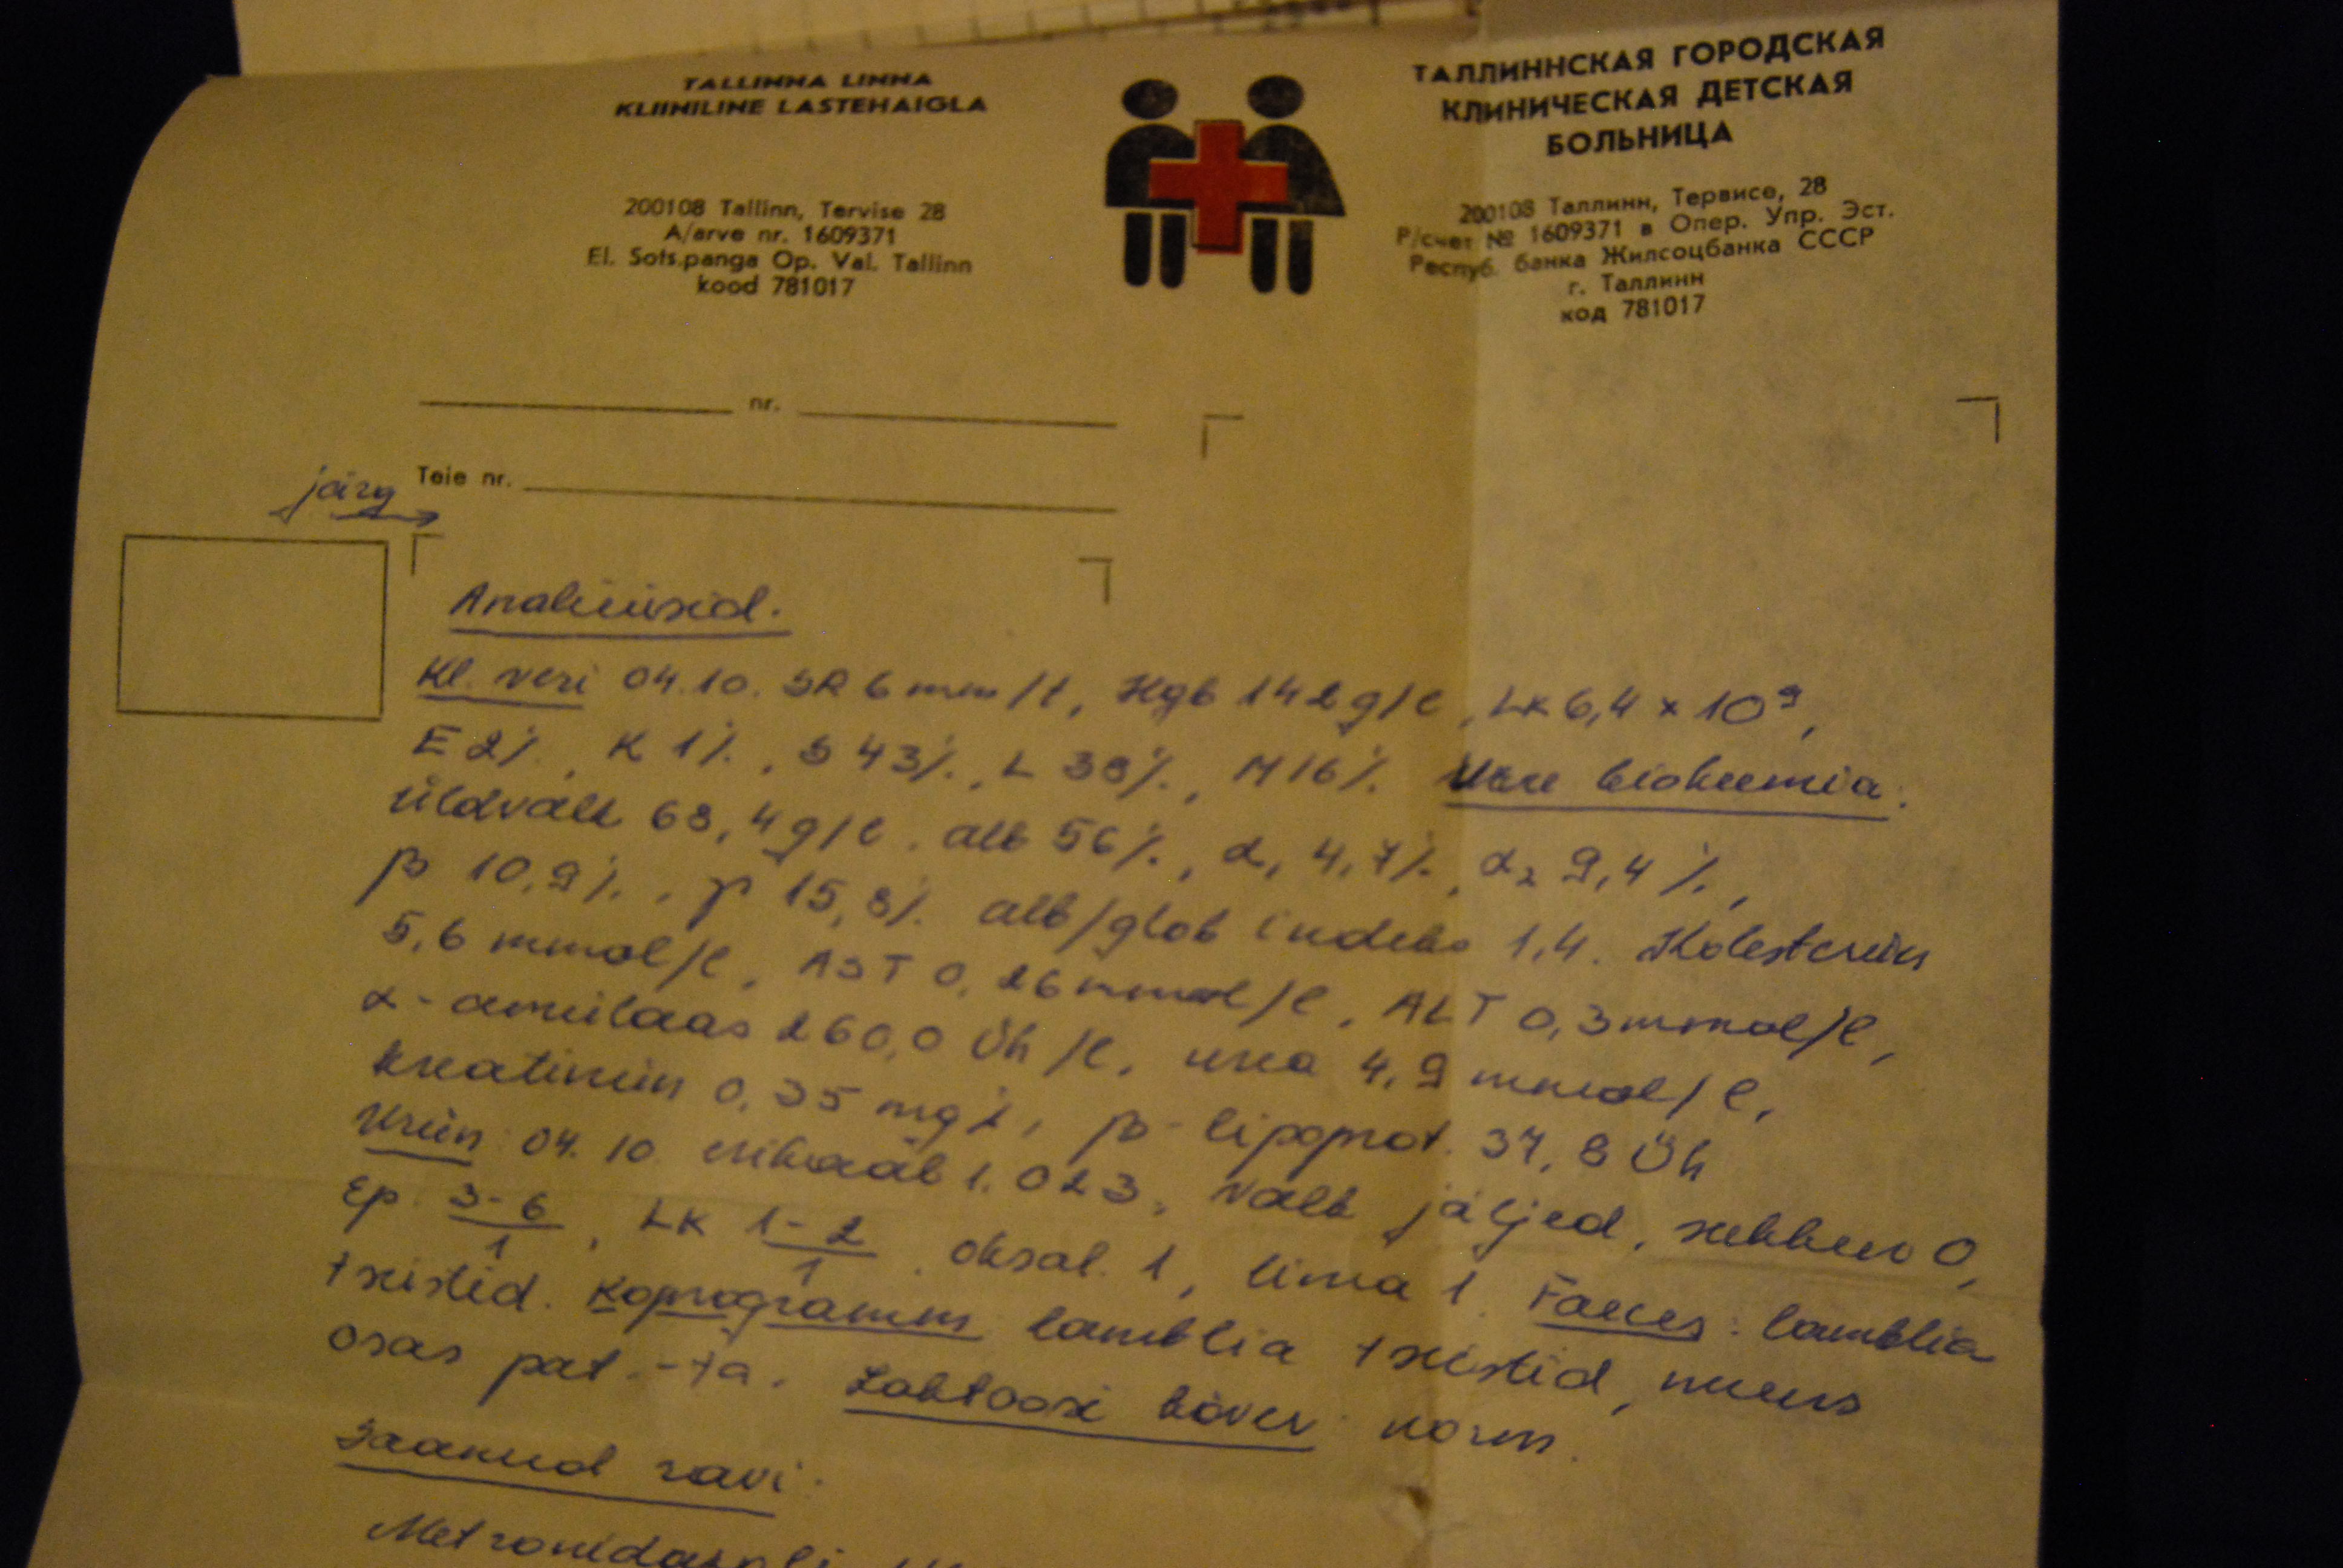 TALLINNA LINNA
KLIINILINE LASTEHAIGLA
200108 Tallinn, Tervise 28
A/arve nr. 1609371
El. Sots.panga Op. Val. Tallinn
kood 781017
ТАЛЛИННСКАЯ ГОРОДСКАЯ
КЛИНИЧЕСКАЯ ДЕТСКАЯ
БОЛЬНИЦА
200108 Таллинн, Тервисе, 28
Р/счет № 1609371 в Опер. Упр. Эст.
Респуб. банка Жилсоцбанка СССР
г. Таллинн
код 781017
nr.
Teie nr.
järg
Analüüsid.
Kl. veri 04.10. SR 6 mm/t, Hgb 142 g/l, Lk 6,4 x 10⁹,
E 2%, K 1%, S 43%, L 38%, M 16%. Vere biokeemia:
üldvalk 68,4 g/l, alb 56%, α₁ 4,7%, α₂ 9,4%,
β 10,9%, γ 15,8%. alb/glob indeks 1,4. Kolesteriin
5,6 mmol/l, AST 0,26 mmol/l, ALT 0,3 mmol/l,
α-amülaas 260,0 Üh/l, urea 4,9 mmol/l,
kreatiniin 0,35 mg%, β-lipoprot. 37,8 Üh
Uriin: 04.10. erikaal 1.023, valk jäljed, suhkur 0,
Ep. 3-6/1, Lk 1-2/1, oksal. 1, lima 1. Faeces: lamblia
tsüstid. Koprogramm: lamblia tsüstid, muus
osas pat.-ta. Laktoosi kõver: norm.
Saanud ravi: